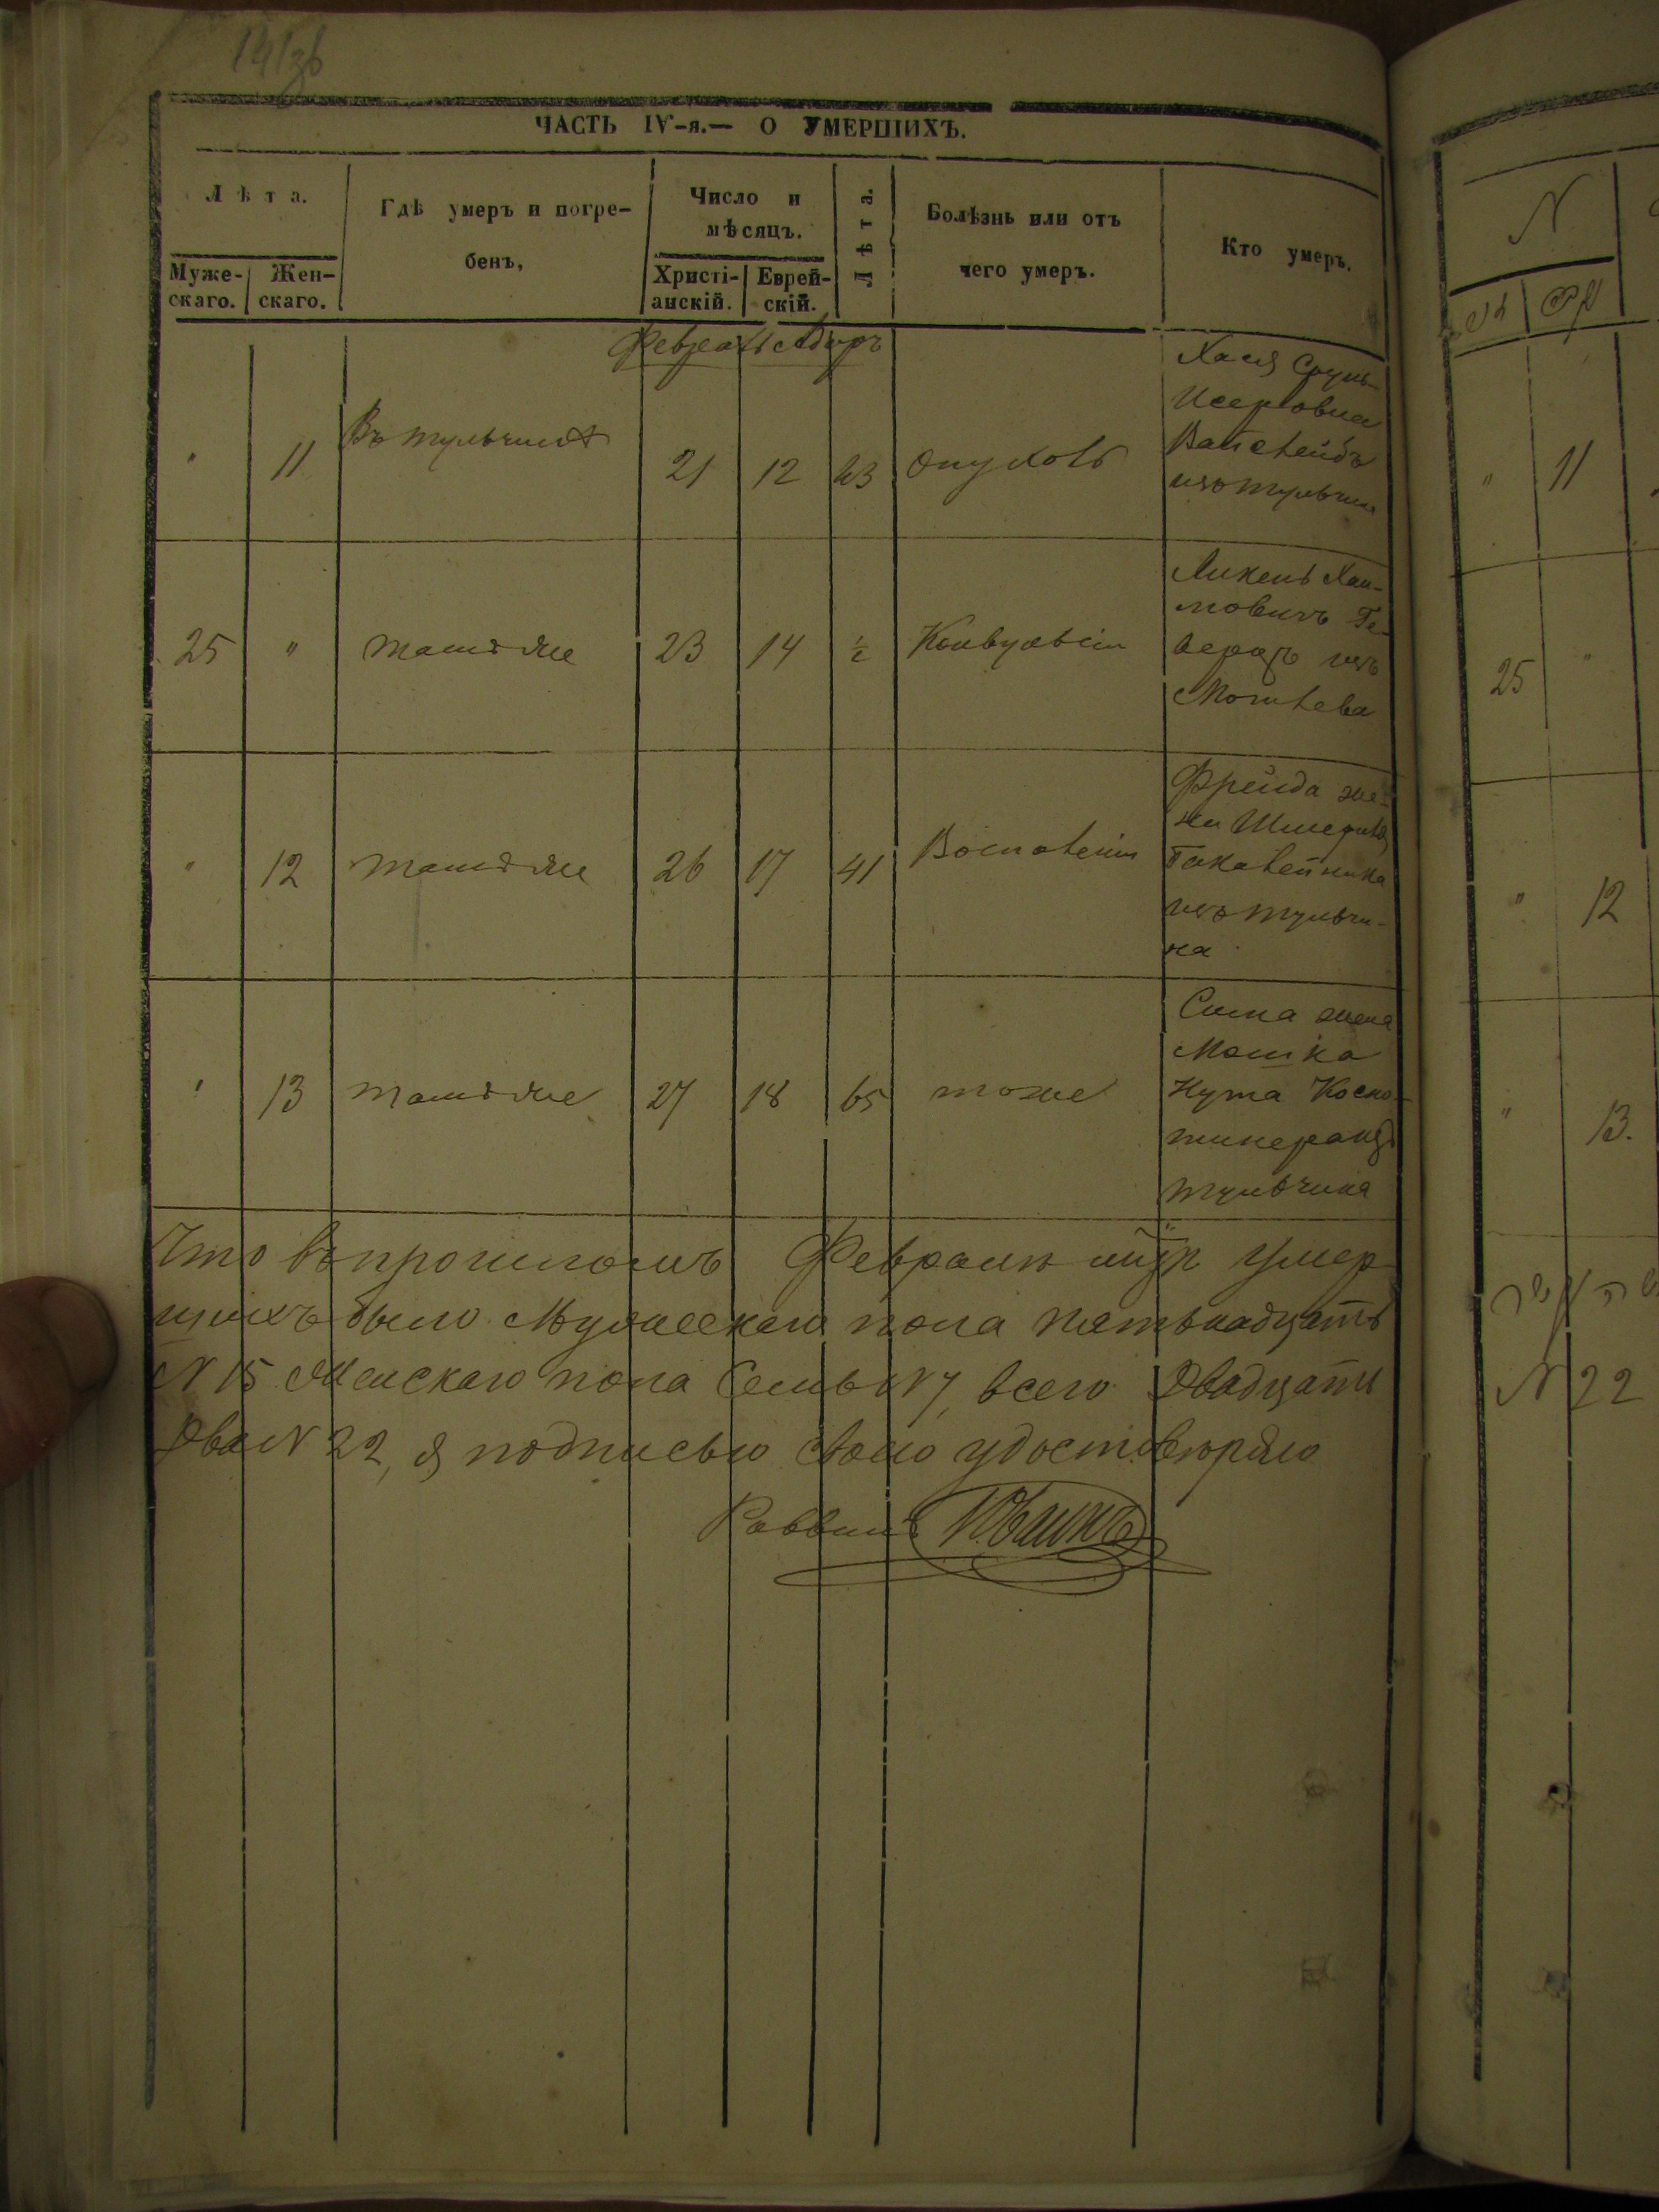 ЧАСТЬ IV-я.— О УМЕРШИХЪ.
Лѣта.
Муже-скаго. Жен-скаго.
Гдѣ умеръ и погре-
бенъ,
Число и
мѣсяцъ.
Христі-анскій. Еврей-скій.
Лѣта.
Болѣзнь или отъ
чего умеръ.
Кто умеръ.
Февраль Адаръ
" 11 Въ Тульчинѣ 21 12 23 Опухоль
Хася Сруль-
Исерковна
Вайслейбъ
изъ Тульчина
25 " тамъ же 23 14 ½ Конвульсіи
Хаи-
мовичъ Ге-
изъ
Могилева
" 12 тамъ же 26 17 41 Воспаленіи
Фрейда же-
на Шмерика
изъ Тульчи-
на
" 13 тамъ же 27 18 65 тоже
Сима жена
Мошка
Нута
Тульчина
Что въ прошломъ Февралѣ м-цѣ умер-
шихъ было Мужескаго пола пятьнадцать
N 15 Женскаго пола Семь N 7, всего Двадцать
Два N 22, я подписью своею удостовѣряю
Раввинъ
N
11
25 "
" 12
" 13.
N 22